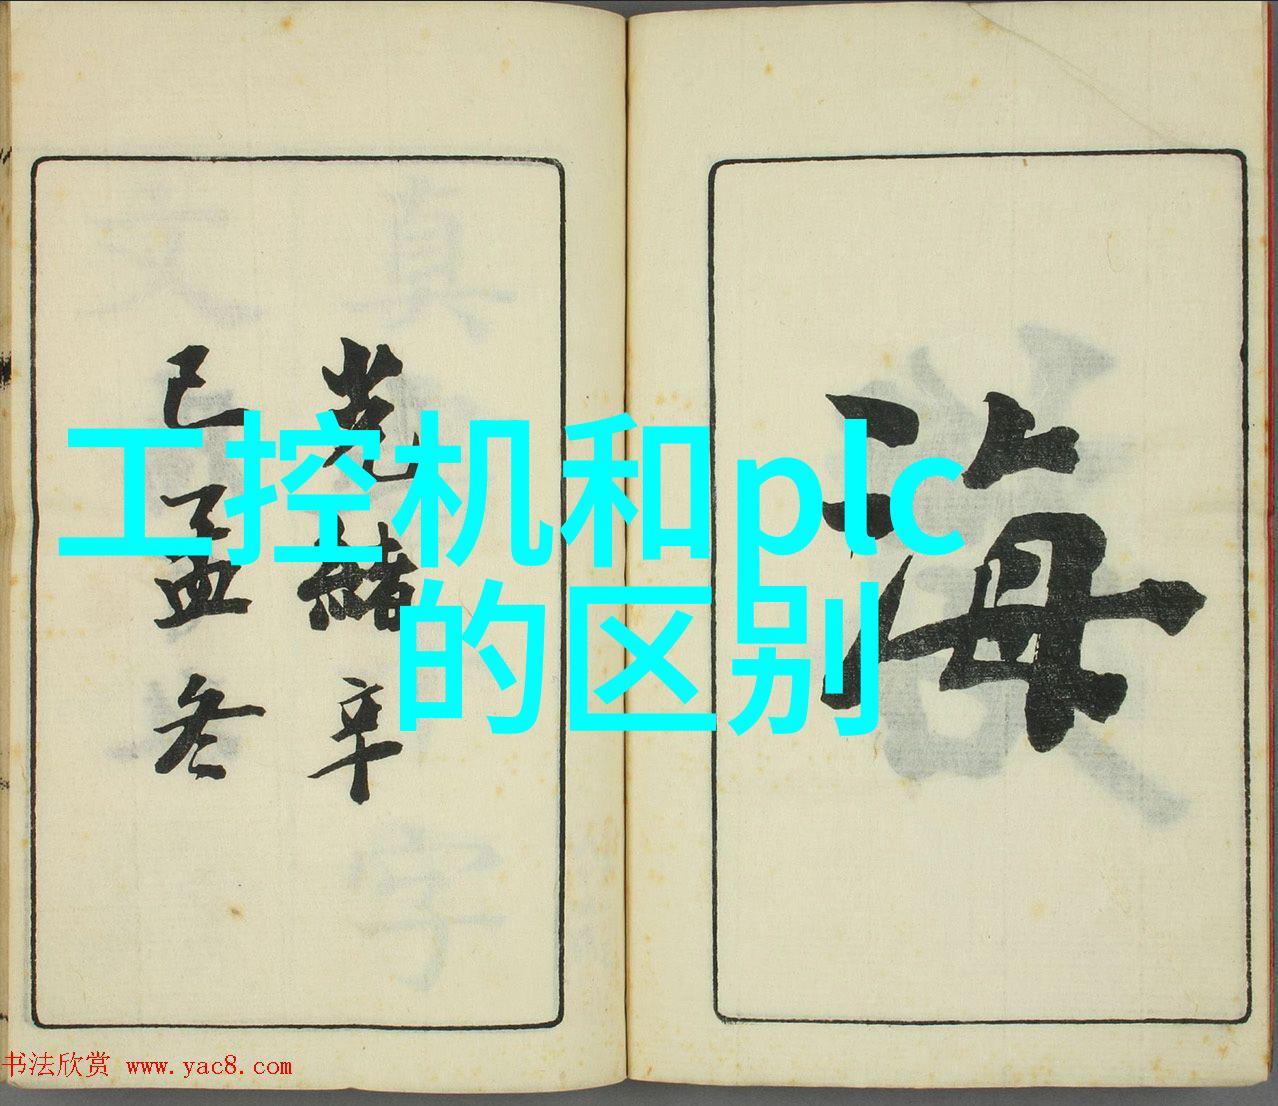 工控机和plc
的区别
海
光緒辛
巳孟冬
书法欣赏 www.yac8.com